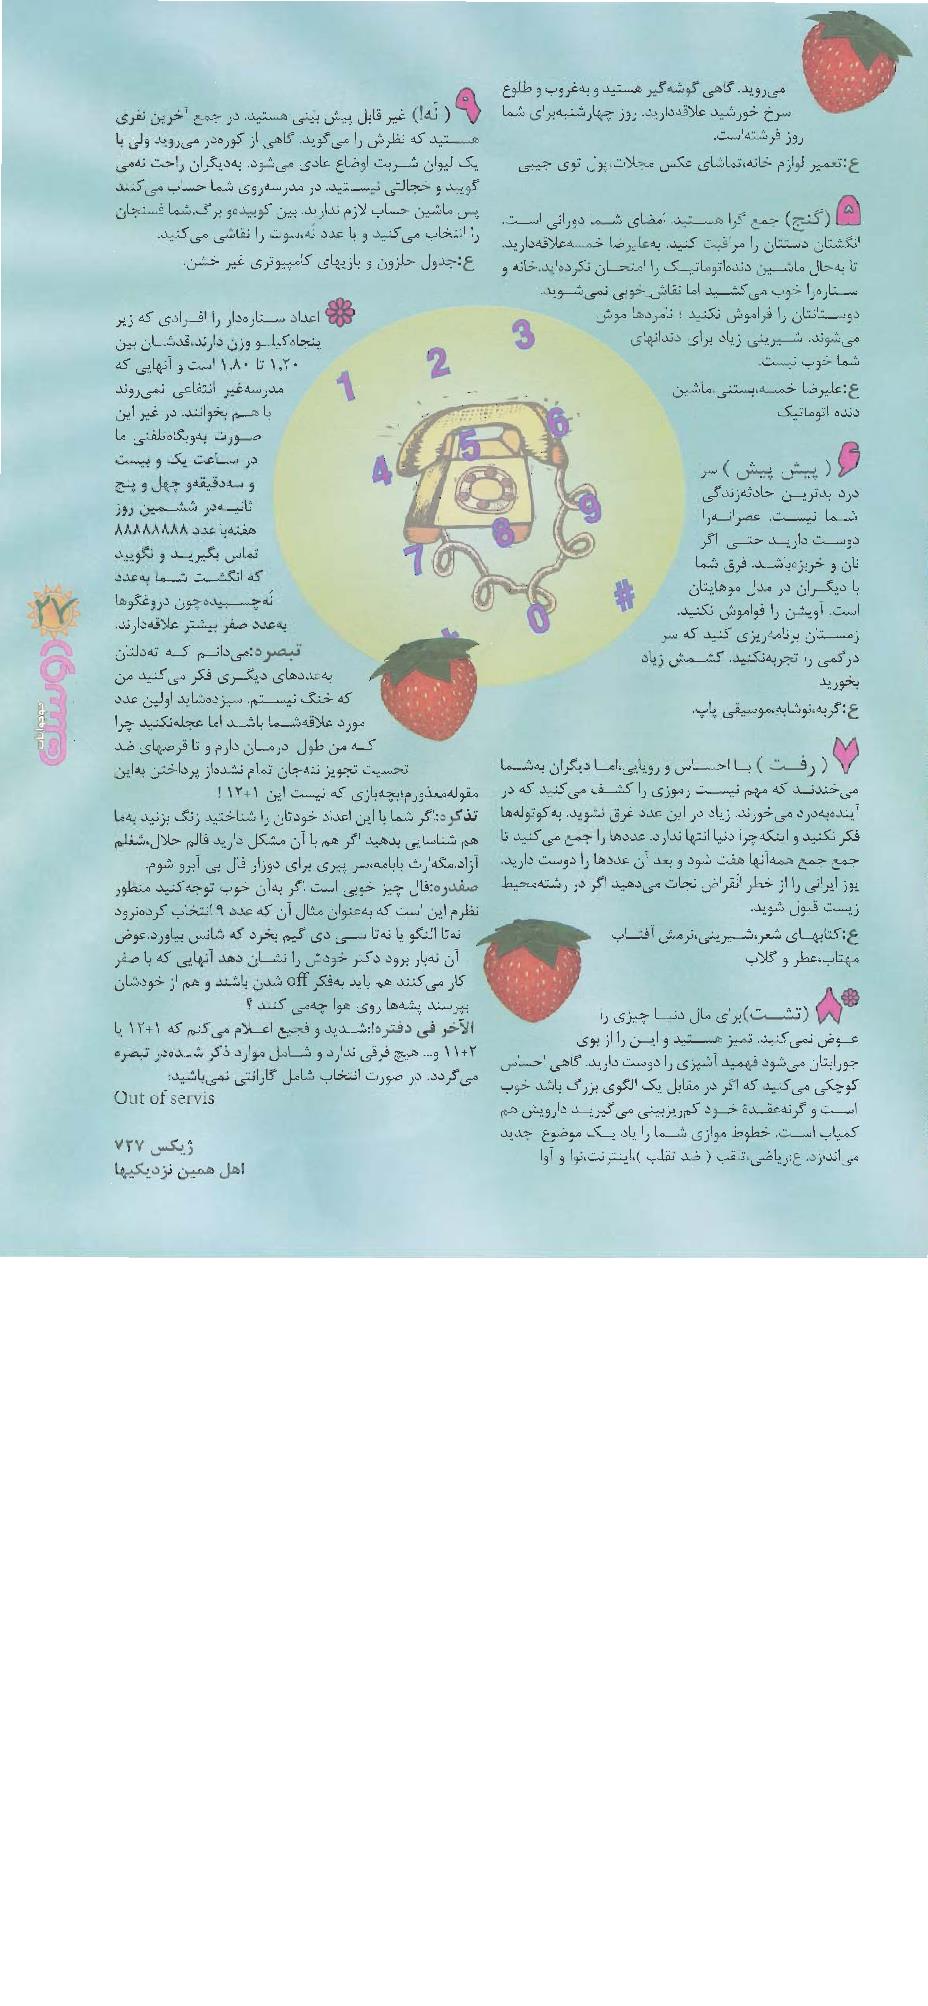 می‌روید. گاهی گوشه‌گیر هستید و به‌غروب و طلوع
سرخ خورشید علاقه‌دارید. روز چهارشنبه‌برای شما
روز فرشته‌است.
ع:تعمیر لوازم خانه،تماشای عکس مجلات،پول توی جیبی
۵ (گنج) جمع گرا هستید. امضای شما دورانی است.
انگشتان دستتان را مراقبت کنید. به‌علیرضا خمسه‌علاقه‌دارید.
تا به‌حال ماشین دنده‌اتوماتیک را امتحان نکرده‌اید،خانه و
ستاره‌را خوب می‌کشید اما نقاش خوبی نمی‌شوید.
دوستانتان را فراموش نکنید ؛ نامردها موش
می‌شوند. شیرینی زیاد برای دندانهای
شما خوب نیست.
ع:علیرضا خمسه،بستنی،ماشین
دنده اتوماتیک
۶ ( پیش پیش ) سر
درد بدترین حادثه‌زندگی
شما نیست. عصرانه‌را
دوست دارید حتی اگر
نان و خربزه‌باشد. فرق شما
با دیگران در مدل موهایتان
است. آویشن را فراموش نکنید.
زمستان برنامه‌ریزی کنید که سر
درگمی را تجربه‌نکنید. کشمش زیاد
بخورید
ع:گربه،نوشابه،موسیقی پاپ.
۷ ( رفت ) با احساس و رویایی،اما دیگران به‌شما
می‌خندند که مهم نیست رموزی را کشف می‌کنید که در
آینده‌به‌درد می‌خورند. زیاد در این عدد غرق نشوید. به‌کوتوله‌ها
فکر نکنید و اینکه‌چرا دنیا انتها ندارد. عددها را جمع می‌کنید تا
جمع جمع همه‌آنها هفت شود و بعد آن عددها را دوست دارید.
یوز ایرانی را از خطر انقراض نجات می‌دهید اگر در رشته‌محیط
زیست قبول شوید.
ع:کتابهای شعر،شیرینی،نرمش آفتاب
مهتاب،عطر و گلاب
۸ (تشت)برای مال دنیا چیزی را
عوض نمی‌کنید. تمیز هستید و این را از بوی
جورابتان می‌شود فهمید آشپزی را دوست دارید. گاهی احساس
کوچکی می‌کنید که اگر در مقابل یک الگوی بزرگ باشد خوب
است و گرنه‌عقدهٔ خود کم‌بزرگ‌بینی می‌گیرید دارویش هم
کمیاب است. خطوط موازی شما را یاد یک موضوع جدید
می‌اندازد. ع:ریاضی،تقلب ( ضد تقلب )،اینترنت،نوا و آوا
۹ ( نُه!) غیر قابل پیش بینی هستید. در جمع آخرین نفری
هستید که نظرش را می‌گوید. گاهی از کوره‌در می‌روید ولی با
یک لیوان شربت اوضاع عادی می‌شود. به‌دیگران راحت نه‌می
گویید و خجالتی نیستید. در مدرسه‌روی شما حساب می‌کنند
پس ماشین حساب لازم ندارید. بین کوبیده‌و برگ،شما فسنجان
را انتخاب می‌کنید و با عدد نُه،سوت را نقاشی می‌کنید.
ع:جدول حلزون و بازیهای کامپیوتری غیر خشن.
اعداد ستاره‌دار را افرادی که زیر
پنجاه‌کیلو وزن دارند،قدشان بین
۱،۲۰ تا ۱،۸۰ است و آنهایی که
مدرسه‌غیر انتفاعی نمی‌روند
با هم بخوانند. در غیر این
صورت به‌وبگاه‌تلفنی ما
در ساعت یک و بیست
و سه‌دقیقه‌و چهل و پنج
ثانیه‌در ششمین روز
هفته‌با عدد ۸۸۸۸۸۸۸۸
تماس بگیرید و نگویید
که انگشت شما به‌عدد
نُه‌چسبیده‌چون دروغگوها
به‌عدد صفر بیشتر علاقه‌دارند.
تبصره:می‌دانم که ته‌دلتان
به‌عددهای دیگری فکر می‌کنید من
که خنگ نیستم. سیزده‌شاید اولین عدد
مورد علاقه‌شما باشد اما عجله‌نکنید چرا
که من طول درمان دارم و تا قرصهای ضد
تحسیت تجویز ننه‌جان تمام نشده‌از پرداختن به‌این
مقوله‌معذورم؛بچه‌بازی که نیست این ۱+۱۲ !
تذکره:اگر شما با این اعداد خودتان را شناختید زنگ بزنید به‌ما
هم شناسایی بدهید اگر هم با آن مشکل دارید فالم حلال،شغلم
آزاد،مگه‌ارث بابامه،سر پیری برای دوزار فال بی آبرو شوم.
صفدره:فال چیز خوبی است اگر به‌آن خوب توجه‌کنید منظور
نظرم این است که به‌عنوان مثال آن که عدد ۹ انتخاب کرده‌نرود
نه‌تا النگو یا نه‌تا سی دی گیم بخرد که شانس بیاورد.عوض
آن نه‌بار برود دکتر خودش را نشان دهد آنهایی که با صفر
کار می‌کنند هم باید به‌فکر off شدن باشند و هم از خودشان
بپرسند پشه‌ها روی هوا چه‌می کنند ؟
الآخر فی دفتره!:شدید و فجیع اعلام می‌کنم که ۱+۱۲ با
۲+۱۱ و... هیچ فرقی ندارد و شامل موارد ذکر شده‌در تبصره
می‌گردد. در صورت انتخاب شامل گارانتی نمی‌باشید:
Out of servis
ژیکس ۷۲۷
اهل همین نزدیکیها
1 2 3
4 5 6
7 8 9
0 #
۲۷
دوست
نوجوانان